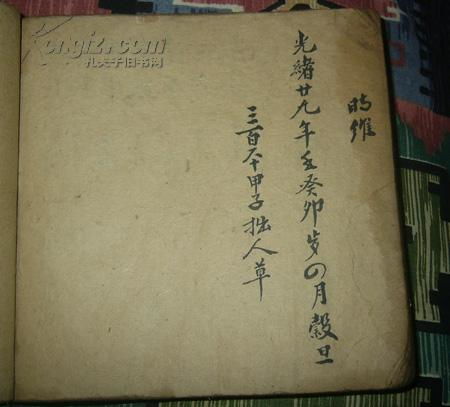 时維
光緒廿九年壬癸卯岁四月穀旦
三百六十甲子拙人草
Kongfz.com
孔夫子旧书网